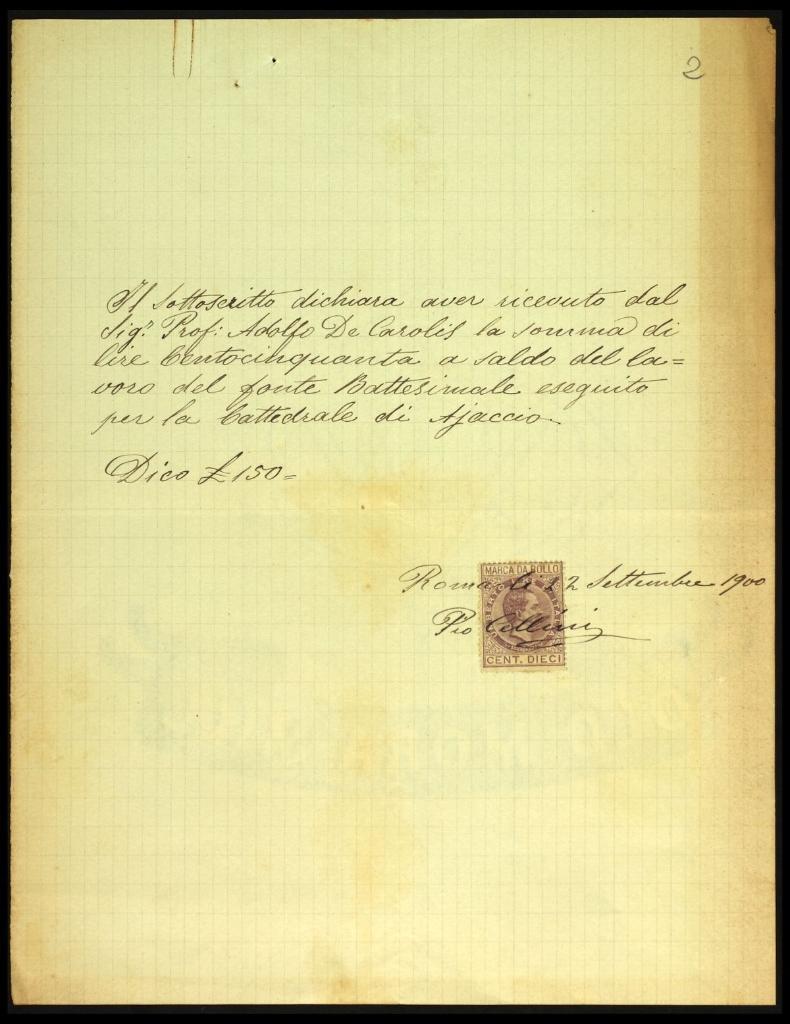 2
Il sottoscritto dichiara aver ricevuto dal
Sig.r Prof: Adolfo De Carolis la somma di
lire Centocinquanta a saldo del la=
voro del fonte Battesimale eseguito
per la Cattedrale di Ajaccio.
Dico £ 150=
Roma li 12 Settembre 1900
Pio Cellini
MARCA DA BOLLO
CENT. DIECI